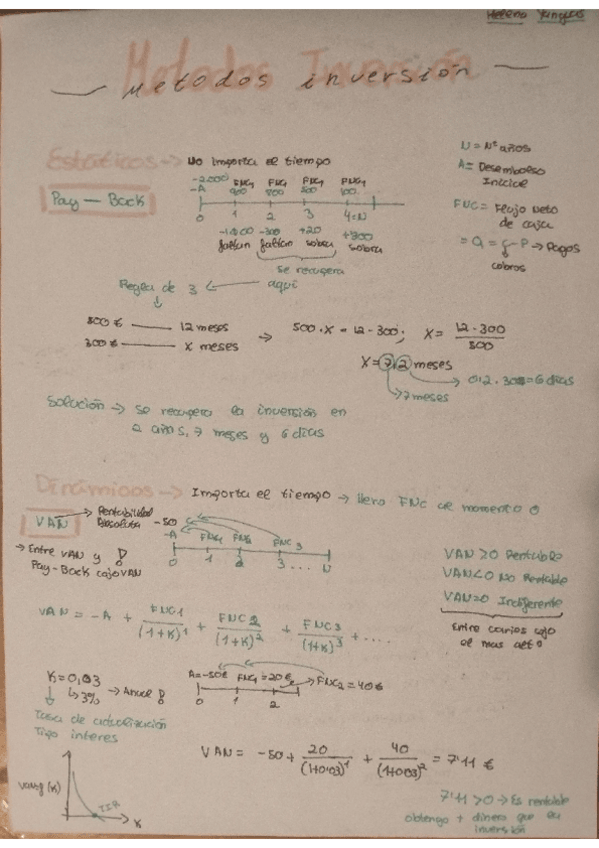 Helena
Metodos Inversión
Metodos inversión
Estáticos → No importa el tiempo
N = Nº años
A = Desembolso Inicial
FNC = Flujo Neto de caja
= Q = C - P → Pagos
cobros
Pay-Back
-2000
-A
0 1 2 3 4=N
faltan faltan sobra sobra
se recupera aquí
Regla de 3
500 € — 12 meses
300 € — x meses
500 · X = 12 · 300; X = 12 · 300 / 500
X = 7,2 meses
0,2 · 30 = 6 días
→ 7 meses
Solución → Se recupera la inversión en
2 años, 7 meses y 6 días
Dinámicos → Importa el tiempo → llevo FNC al momento 0
VAN → Rentabilidad Absoluta
-50
-A FNC1 FNC2 FNC3
0 1 2 3 ... N
→ Entre VAN y
Pay-Back cojo VAN
VAN>0 Rentable
VAN<0 No Rentable
VAN=0 Indiferente
Entre varios cojo
el mas alto
VAN = -A + FNC1 / (1+K)¹ + FNC2 / (1+K)² + FNC3 / (1+K)³ + ....
K=0,03
↳ 3% → Anual
Tasa de actualización
Tipo interes
A=-50€ FNC1=20€ → FNC2=40€
0 1 2
VAN = -50 + 20 / (1+0'03)¹ + 40 / (1+0'03)² = 7'11 €
TIR
K
7'11 > 0 → Es rentable
obtengo + dinero que en
inversión